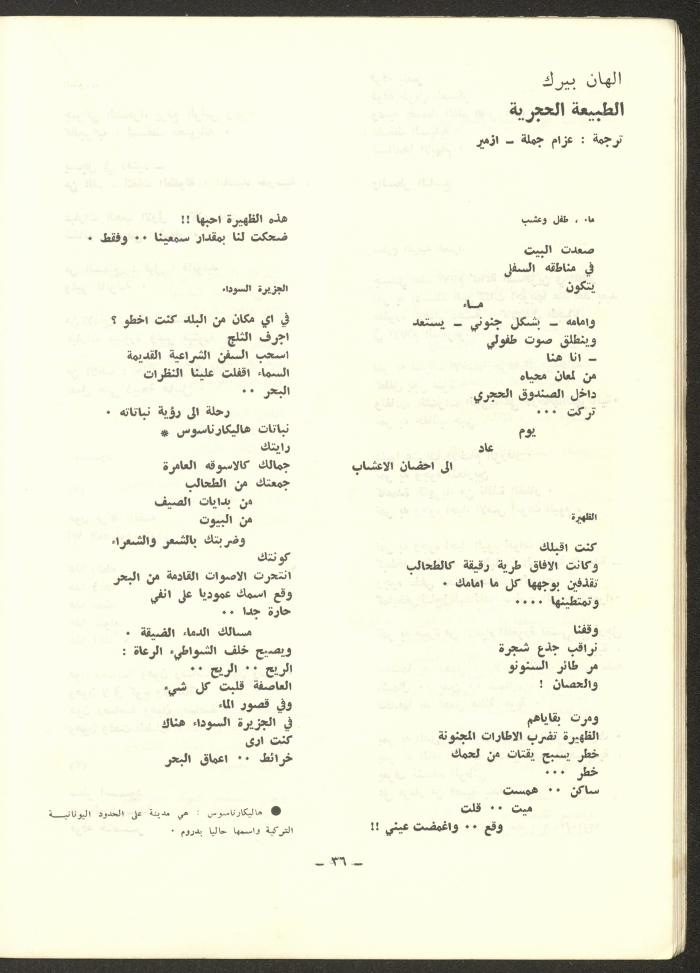 الهان بيرك
الطبيعة الحجرية
ترجمة : عزام جملة ـ ازمير
ماء ، طفل وعشب
صعدت البيت
في مناطقه السفلى
يتكون
مـاء
وامامه ـ بشكل جنوني ـ يستعد
وينطلق صوت طفولي
ـ انا هنا
من لمعان محياه
داخل الصندوق الحجري
تركت ٠٠٠
يوم
عاد
الى احضان الاعشاب
الظهيرة
كنت اقبلك
وكانت الافاق طرية رقيقة كالطحالب
تقذفين بوجهها كل ما امامك ٠
وتمتطينها ٠٠٠٠
وقفنا
نراقب جذع شجرة
مر طائر السنونو
والحصان !
ومرت بقاياهم
الظهيرة تضرب الاطارات المجنونة
خطر يسبح يقتات من لحمك
خطر ٠٠٠
ساكن ٠٠ همست
ميت ٠٠ قلت
وقع ٠٠ واغمضت عيني !!
هذه الظهيرة احبها !!
ضحكت لنا بمقدار سمعينا ٠٠ وفقط ٠
الجزيرة السوداء
في اي مكان من البلد كنت اخطو ؟
اجرف الثلج
اسحب السفن الشراعية القديمة
السماء اقفلت علينا النظرات
البحر ٠٠
رحلة الى رؤية نباتاته ٠
نباتات هاليكارناسوس *
رايتك
جمالك كالاسوقه العامرة
جمعتك من الطحالب
من بدايات الصيف
من البيوت
وضربتك بالشعر والشعراء
كونتك
انتحرت الاصوات القادمة من البحر
وقع اسمك عموديا على انفي
حارة جدا ٠٠
مسالك الدماء الضيقة ٠
ويصيح خلف الشواطيء الرعاة :
الريح ٠٠ الريح ٠٠
العاصفة قلبت كل شيء
وفي قصور الماء
في الجزيرة السوداء هناك
كنت ارى
خرائط ٠٠ اعماق البحر
● هاليكارناسوس : هي مدينة على الحدود اليونانيـة
التركية واسمها حاليا بدروم ٠
ـ ٣٦ ـ